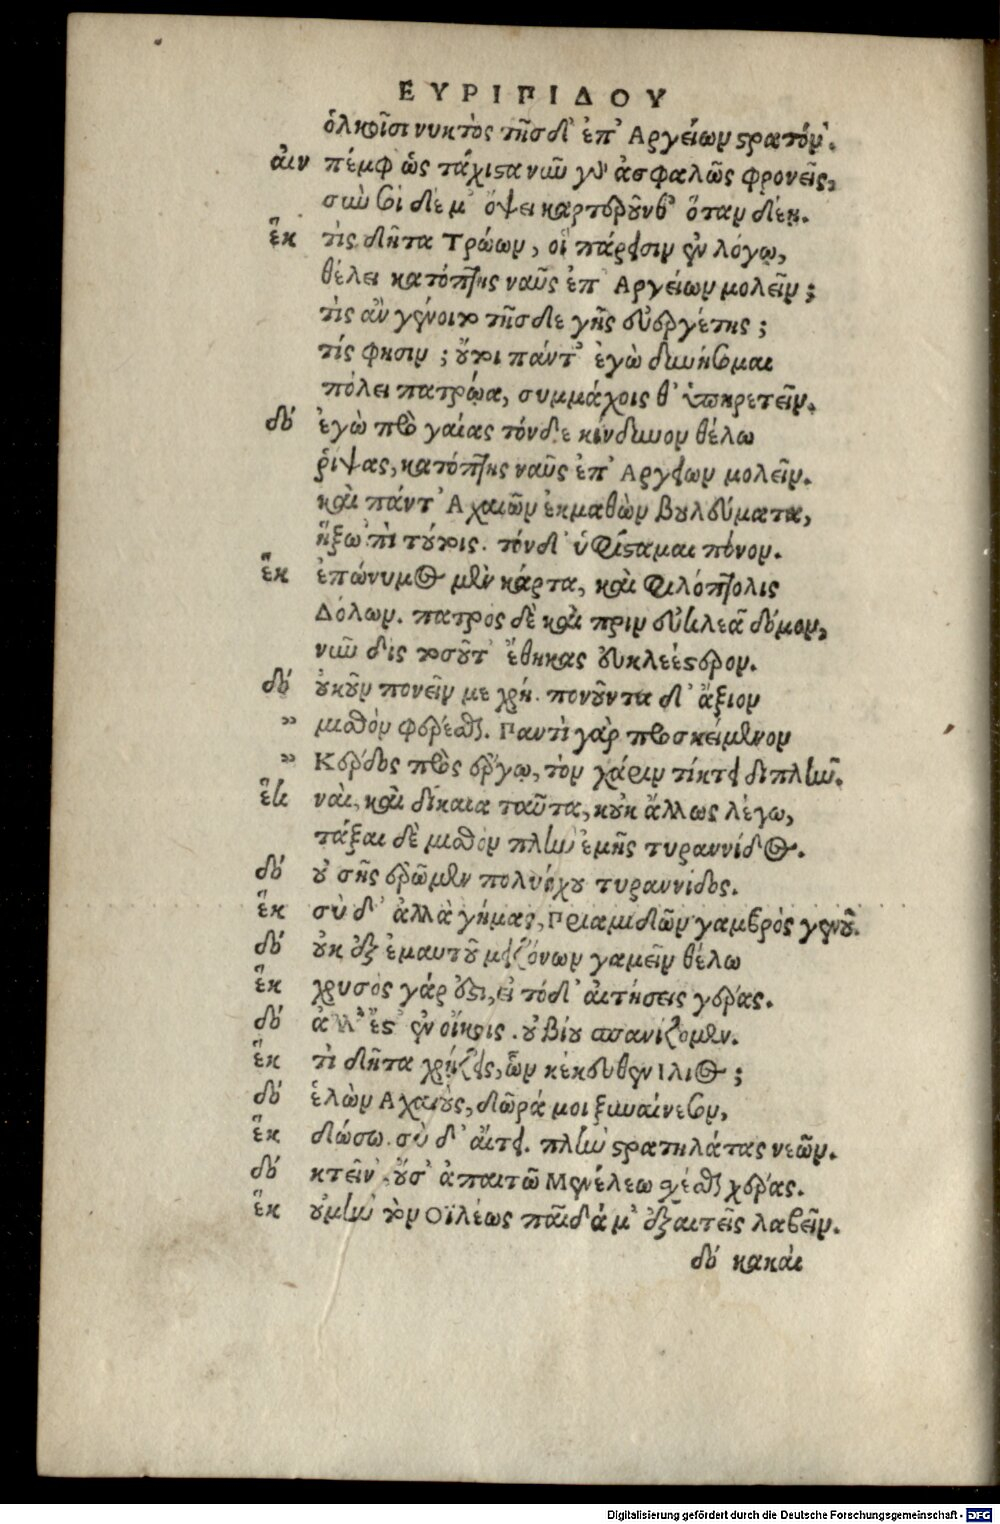 ΕΥΡΙΠΙΔΟΥ
ὁλκοῖσι νυκτὸς τῆσδ' ἐπ' Αργείων στρατόν.
αἰν πέμφ' ὡς τάχιστα νῦν γὰρ ἀσφαλῶς φρονεῖς,
σὺν σοὶ δέ μ' ὄψει καρτεροῦνθ' ὅταν δέῃ.
ἕκ τὶς δῆτα Τρώων, οἳ πάρεισιν ἐν λόγῳ,
θέλει κατόπτης ναῦς ἐπ' Αργείων μολεῖν;
τὶς ἂν γένοιτο τῆσδε γῆς εὐεργέτης;
τίς φησιν; οὔτοι πάντ' ἐγὼ δυνήσομαι
πόλει πατρῴα, συμμάχοις θ' ὑπηρετεῖν.
δό ἐγὼ πρὸ γαίας τόνδε κίνδυνον θέλω
ῥίψας, κατόπτης ναῦς ἐπ' Αργείων μολεῖν.
καὶ πάντ' Αχαιῶν ἐκμαθὼν βουλεύματα,
ἥξω 'πὶ τούτοις. τόνδ' ὑφίσταμαι πόνον.
ἕκ ἐπώνυμος μὲν κάρτα, καὶ φιλόπτολις
Δόλων. πατρὸς δὲ καὶ πρὶν εὐκλεᾶ δόμον,
νῦν δὶς τοσοῦτ' ἔθηκας εὐκλεέστερον.
δό οὐκοῦν πονεῖν με χρή. πονοῦντα δ' ἄξιον
" μισθὸν φέρεσθαι. Παντὶ γὰρ προσκείμενον
" Κέρδος πρὸς ἔργῳ, τὸν χάριν τίκτει διπλῆν.
ἕκ ναὶ, καὶ δίκαια ταῦτα, κοὐκ ἄλλως λέγω,
τάξαι δὲ μισθὸν πλὴν ἐμῆς τυραννίδος.
δό οὐ σῆς ἐρῶμεν πολυόχου τυραννίδος.
ἕκ σὺ δ' ἀλλὰ γήμας, Πριαμιδῶν γαμβρὸς γενοῦ.
δό οὐκ ἐξ ἐμαυτοῦ μειζόνων γαμεῖν θέλω
ἕκ χρυσὸς γάρ ἐστι, εἰ τόδ' αἰτήσεις γέρας.
δό ἀλλ' ἔστ' ἐν οἴκοις. οὐ βίου σπανίζομεν.
ἕκ τὶ δῆτα χρῄζεις, ὧν κέκευθεν Ιλιος;
δό ἑλὼν Αχαιοὺς, δῶρά μοι ξυναίνεσον,
ἕκ δώσω. σὺ δ' αἴτει. πλὴν στρατηλάτας νεῶν.
δό κτεῖν'. οὔσ' ἀπαιτῶ Μενέλεω σχέσθαι χέρας.
ἕκ οὐμὴν τὸν Οϊλέως παῖδά μ' ἐξαιτεῖς λαβεῖν.
δό κακαὶ
Digitalisierung gefördert durch die Deutsche Forschungsgemeinschaft - DFG